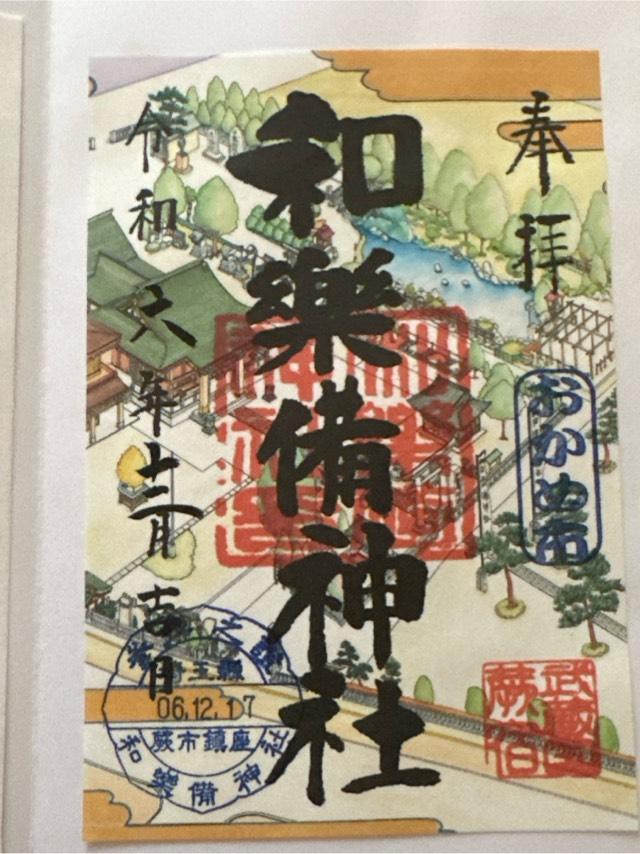 奉拝
おかめ市
武蔵国
蕨宿
和樂備神社
令和六年十二月吉日
埼玉縣
06.12.17
蕨市鎮座
和樂備神社